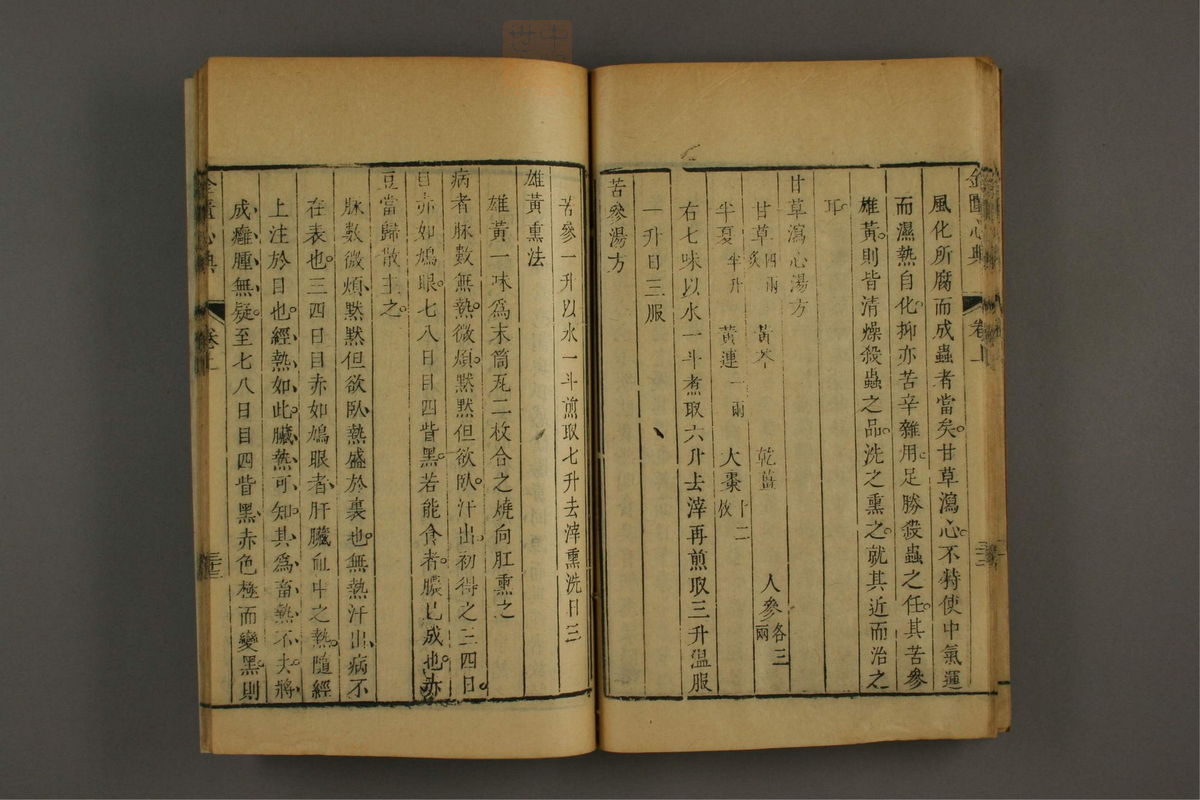 金匱心典
卷上
風化所腐而成蟲者當矣甘草瀉心不特使中氣運
而濕熱自化抑亦苦辛雜用足勝殺蟲之任其苦參
雄黃則皆清燥殺蟲之品洗之熏之就其近而治之
耳
甘草瀉心湯方
甘草四兩炙 黃芩 乾薑 人參各三兩
半夏半升 黃連一兩 大棗十二枚
右七味以水一斗煮取六升去滓再煎取三升溫服
一升日三服
苦參湯方
苦參一升以水一斗煎取七升去滓熏洗日三
雄黃熏法
雄黃一味為末筒瓦二枚合之燒向肛熏之
病者脉數無熱微煩黙黙但欲臥汗出初得之三四日
目赤如鳩眼七八日目四眥黑若能食者膿已成也赤
豆當歸散主之
脉數微煩黙黙但欲臥熱盛於裏也無熱汗出病不
在表也三四日目赤如鳩眼者肝臟血中之熱隨經
上注於目也經熱如此臟熱可知其為畜熱不去將
成癰腫無疑至七八日目四眥黑赤色極而變黑則
金匱心典
卷上
三十三